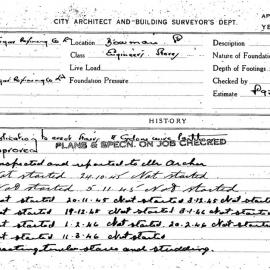 CITY ARCHITECT AND BUILDING SURVEYOR'S DEPT.
AP
YE
Sugar Refining Co Location Bowman Description
Class Engineers Store Nature of Foundation
Live Load Depth of Footings
Sugar Refining Co Foundation Pressure Checked by
Estimate
HISTORY
to erect
PLANS & SPECN. ON JOB CHECKED
approved
Inspected and reported to Mr Archer
Not started 24.10.45 Not started
Not started 5.11.45 Not started
Not started 20.11.45 Not started 3.12.45 Not started
Not started 19.12.45 Not started 3.1.46 Not started
Not started 1.2.46 Not started 20.2.46 Not started
Not started 11.3.46 Not started
Erecting timber stairs and studding.